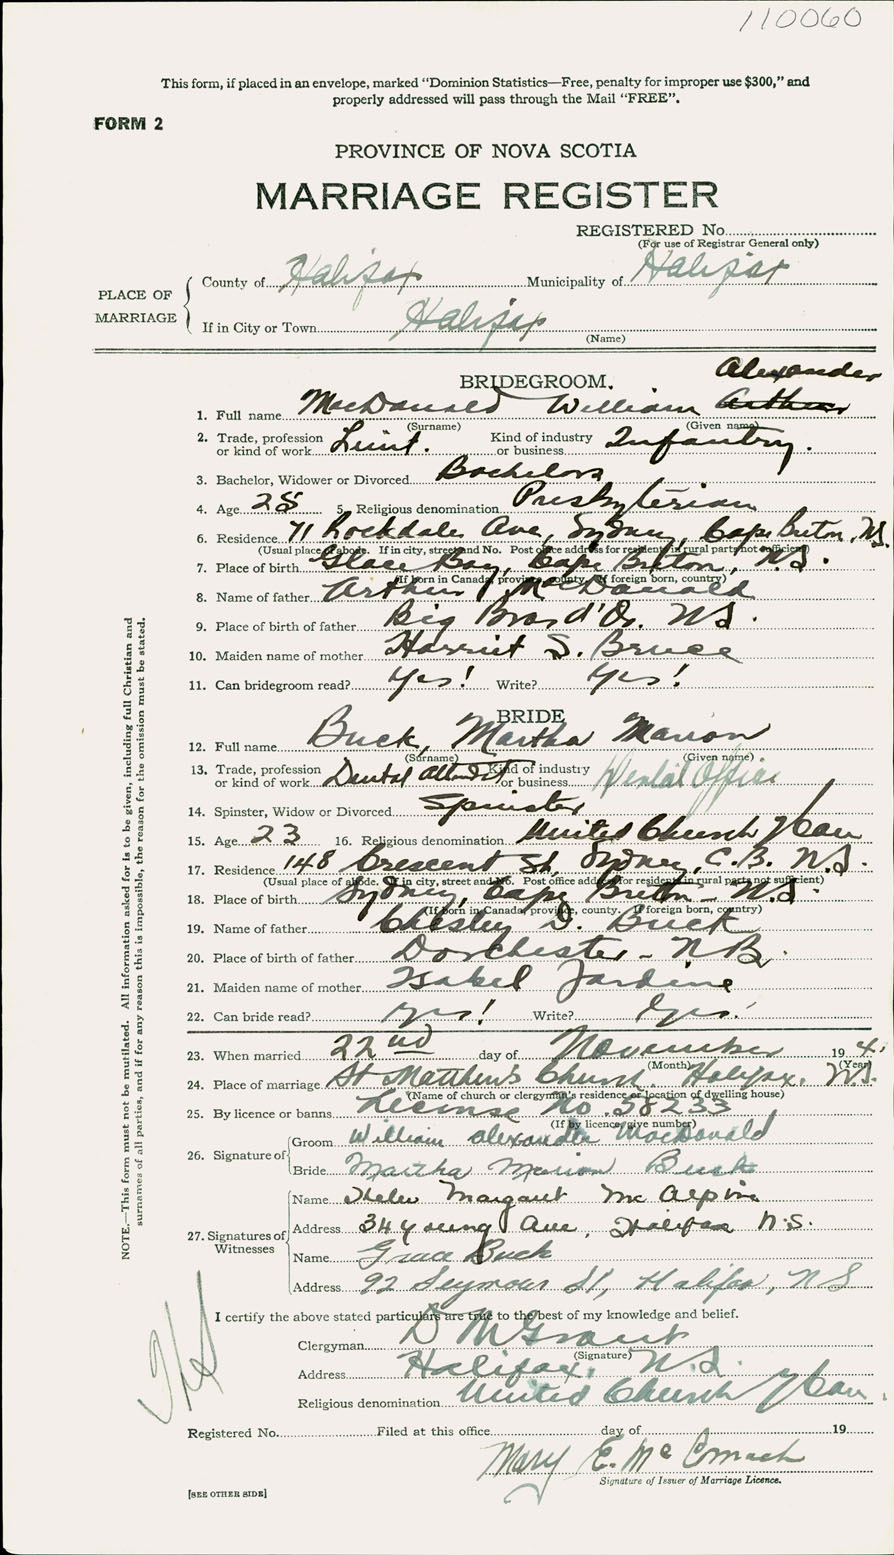 110060
This form, if placed in an envelope, marked "Dominion Statistics—Free, penalty for improper use $300," and
properly addressed will pass through the Mail "FREE".
FORM 2
PROVINCE OF NOVA SCOTIA
MARRIAGE REGISTER
REGISTERED No.
(For use of Registrar General only)
PLACE OF MARRIAGE
County of Halifax Municipality of Halifax
If in City or Town Halifax
(Name)
BRIDEGROOM.
Alexander
1. Full name MacDonald William Arthur
(Surname) (Given name)
2. Trade, profession or kind of work Lieut. Kind of industry or business Infantry.
3. Bachelor, Widower or Divorced Bachelor
4. Age 28 5. Religious denomination Presbyterian
6. Residence 71 Rockdale Ave, Sydney, Cape Breton, N.S.
(Usual place of abode. If in city, street and No. Post office address for residents in rural parts not sufficient)
7. Place of birth Glace Bay, Cape Breton, N.S.
(If born in Canada, province, county. If foreign born, country)
8. Name of father Arthur MacDonald
9. Place of birth of father Big Bras d'Or, N.S.
10. Maiden name of mother Harriet S. Bruce
11. Can bridegroom read? Yes! Write? Yes!
BRIDE
12. Full name Buck, Martha Marion
(Surname) (Given name)
13. Trade, profession or kind of work Dental Attend't Kind of industry or business Dental Office
14. Spinster, Widow or Divorced Spinster
15. Age 23 16. Religious denomination United Church of Can
17. Residence 148 Crescent St, Sydney, C.B. N.S.
(Usual place of abode. If in city, street and No. Post office address for residents in rural parts not sufficient)
18. Place of birth Sydney, Cape Breton - N.S.
(If born in Canada, province, county. If foreign born, country)
19. Name of father Chesley D. Buck
20. Place of birth of father Dorchester - N.B.
21. Maiden name of mother Isabel Jardine
22. Can bride read? Yes! Write? Yes!
23. When married 22nd day of November 194
(Month) (Year)
24. Place of marriage St Matthew's Church, Halifax, N.S.
(Name of church or clergyman's residence or location of dwelling house)
25. By licence or banns License No. 58233
(If by licence, give number)
26. Signature of
Groom William Alexander MacDonald
Bride Martha Marion Buck
27. Signatures of Witnesses
Name Helen Margaret McAlpine
Address 34 Young Ave, Halifax N.S.
Name Grace Buck
Address 92 Seymour St, Halifax, NS
I certify the above stated particulars are true to the best of my knowledge and belief.
Clergyman D M Grant
(Signature)
Address Halifax, N.S.
Religious denomination United Church of Can.
Registered No. Filed at this office day of 19
Mary E. McCormack
Signature of Issuer of Marriage Licence.
[SEE OTHER SIDE]
NOTE.—This form must not be mutilated. All information asked for is to be given, including full Christian and
surnames of all parties, and if for any reason this is impossible, the reason for the omission must be stated.